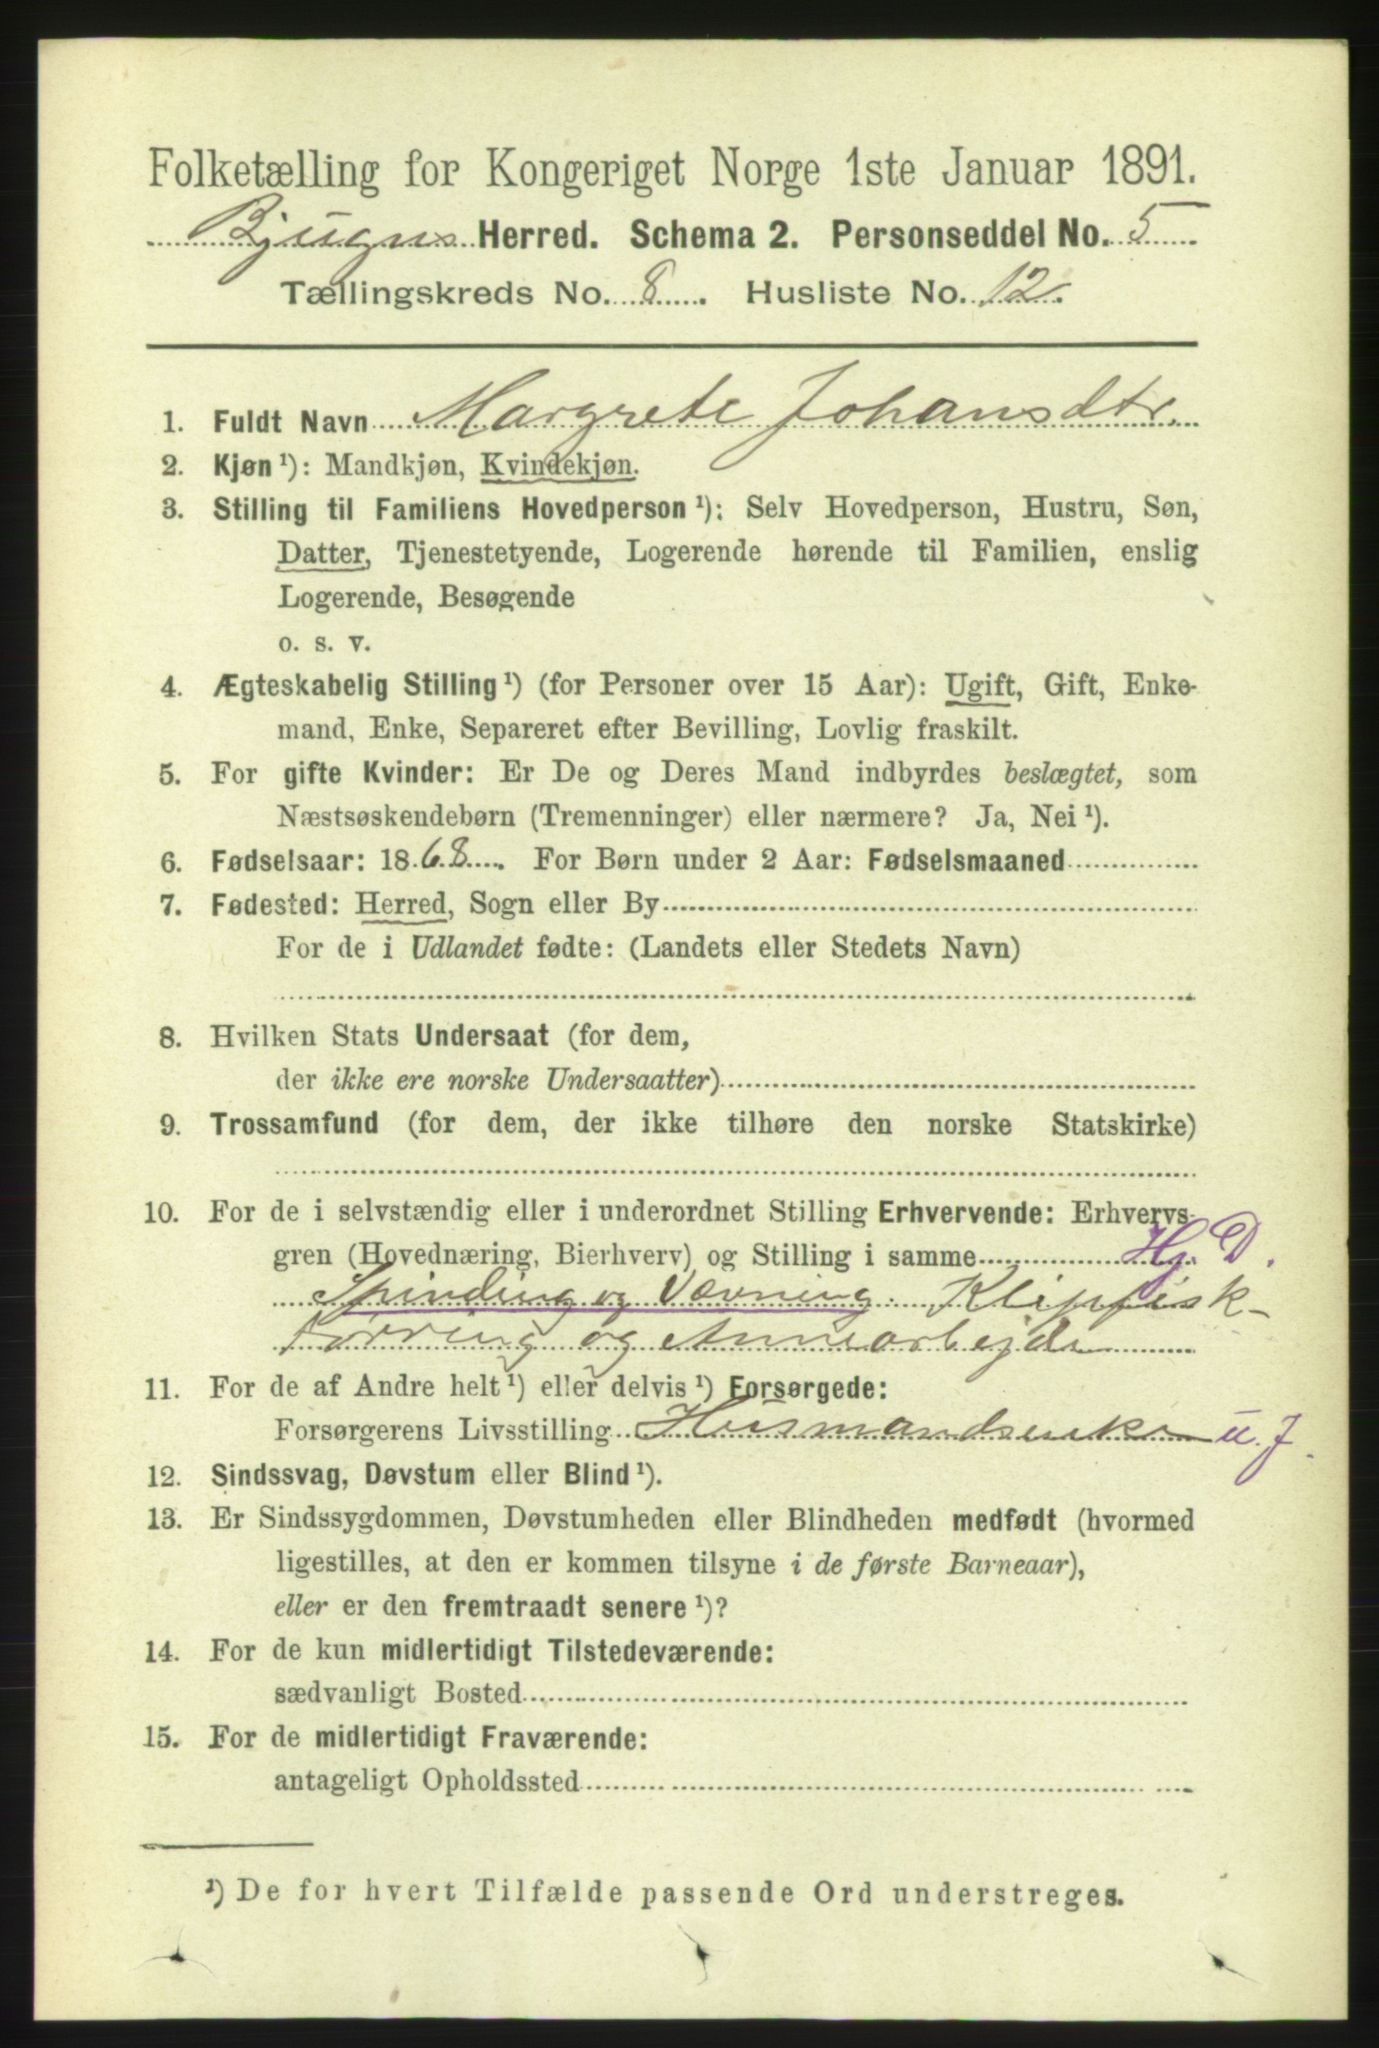 Folketælling for Kongeriget Norge 1ste Januar 1891.
Bjugns Herred. Schema 2. Personseddel No. 5
Tællingskreds No. 8. Husliste No. 12.
1. Fuldt Navn Margrete Johansdtr.
2. Kjøn ¹): Mandkjøn, Kvindekjøn.
3. Stilling til Familiens Hovedperson ¹): Selv Hovedperson, Hustru, Søn,
Datter, Tjenestetyende, Logerende hørende til Familien, enslig
Logerende, Besøgende
o. s. v.
4. Ægteskabelig Stilling ¹) (for Personer over 15 Aar): Ugift, Gift, Enke-
mand, Enke, Separeret efter Bevilling, Lovlig fraskilt.
5. For gifte Kvinder: Er De og Deres Mand indbyrdes beslægtet, som
Næstsøskendebørn (Tremenninger) eller nærmere? Ja, Nei ¹).
6. Fødselsaar: 1868. For Børn under 2 Aar: Fødselsmaaned
7. Fødested: Herred, Sogn eller By
For de i Udlandet fødte: (Landets eller Stedets Navn)
8. Hvilken Stats Undersaat (for dem,
der ikke ere norske Undersaatter)
9. Trossamfund (for dem, der ikke tilhøre den norske Statskirke)
10. For de i selvstændig eller i underordnet Stilling Erhvervende: Erhvervs-
gren (Hovednæring, Bierhverv) og Stilling i samme Hj. D.
Spinding og Vævning. Klipfisk-
tørring og Annearbejde
11. For de af Andre helt ¹) eller delvis ¹) Forsørgede:
Forsørgerens Livsstilling Husmandsenke u. J.
12. Sindssvag, Døvstum eller Blind ¹).
13. Er Sindssygdommen, Døvstumheden eller Blindheden medfødt (hvormed
ligestilles, at den er kommen tilsyne i de første Barneaar),
eller er den fremtraadt senere ¹)?
14. For de kun midlertidigt Tilstedeværende:
sædvanligt Bosted
15. For de midlertidigt Fraværende:
antageligt Opholdssted
¹) De for hvert Tilfælde passende Ord understreges.